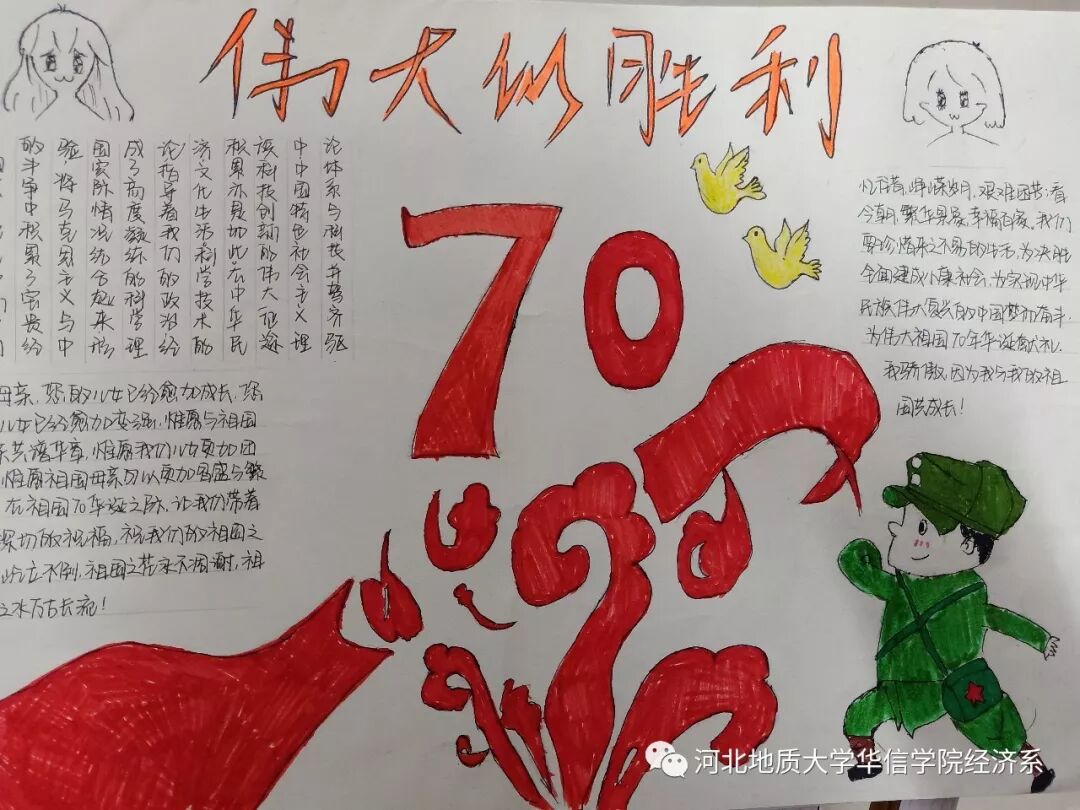 伟大似胜利
的斗争中积累了宝贵经
验,将马克思主义与中
国实际情况结合起来形
成了高度凝练的科学理
论指导着我们的政治经
济文化生活科学技术的
积累亦是如此在中华民
族科技创新的伟大征途
中中国特色社会主义理
论体系与科技并驾齐驱
70
母亲,您的儿女已经愈加成长,您
儿女已经愈加变强,惟愿与祖国
共谱华章,惟愿我们儿女更加团
惟愿祖国母亲可以更加昌盛与繁
在祖国70华诞之际,让我们带着
深切的祝福,祝我们的祖国之
屹立不倒,祖国之花永不凋谢,祖
之水万古长流!
忆往昔,峥嵘岁月,艰难困苦;看
今朝,繁华景象,幸福百家。我们
要珍惜来之不易的生活,为决胜
全面建成小康社会,为实现中华
民族伟大复兴的中国梦而奋斗,
为伟大祖国70年华诞献礼.
我骄傲,因为我与我的祖
国共成长!
河北地质大学华信学院经济系